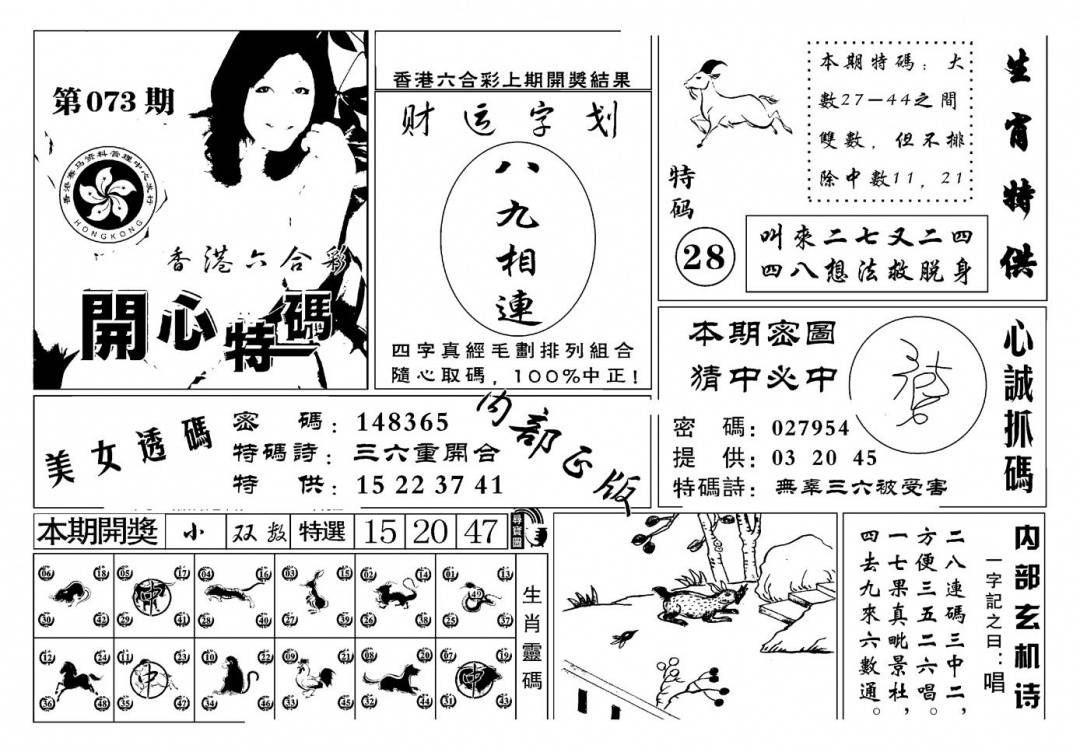 第073期
香港赛马资料管理中心发行
HONGKONG
香港六合彩
開心特碼
香港六合彩上期開獎結果
财运字划
八九相連
四字真經毛劃排列組合
隨心取碼，100%中正!
本期特碼：大
數27—44之間
雙數，但不排
除中數11，21
特码
28
叫來二七又二四
四八想法救脱身
生肖特供
美女透碼
密碼：148365
特碼詩：三六重開合
特供：15 22 37 41
内部正版
本期密圖
猜中必中
密碼：027954
提供：03 20 45
特碼詩：無辜三六被受害
心誠抓碼
本期開獎 小 双数 特選 15 20 47
尋寶圖
06 18 05 17 04 16 03 15 02 14 01 13
中 49
30 42 29 41 28 40 27 39 26 38 25 37
12 24 11 23 10 22 09 21 08 20 07 19
中 中
36 48 35 47 34 46 33 45 32 44 31 43
生肖靈碼
内部玄机诗
一字記之曰：唱
二八連碼三中二，
方便三五二六唱。
一七果真毗景杜，
四去九來六數通。